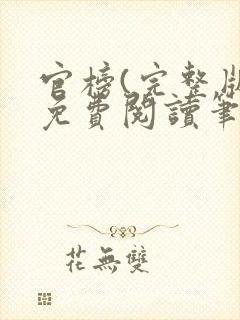 官榜(完整版
免費閱讀筆
花無雙